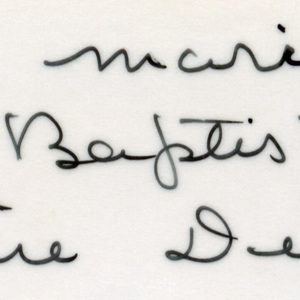 mari
Baptis
re De